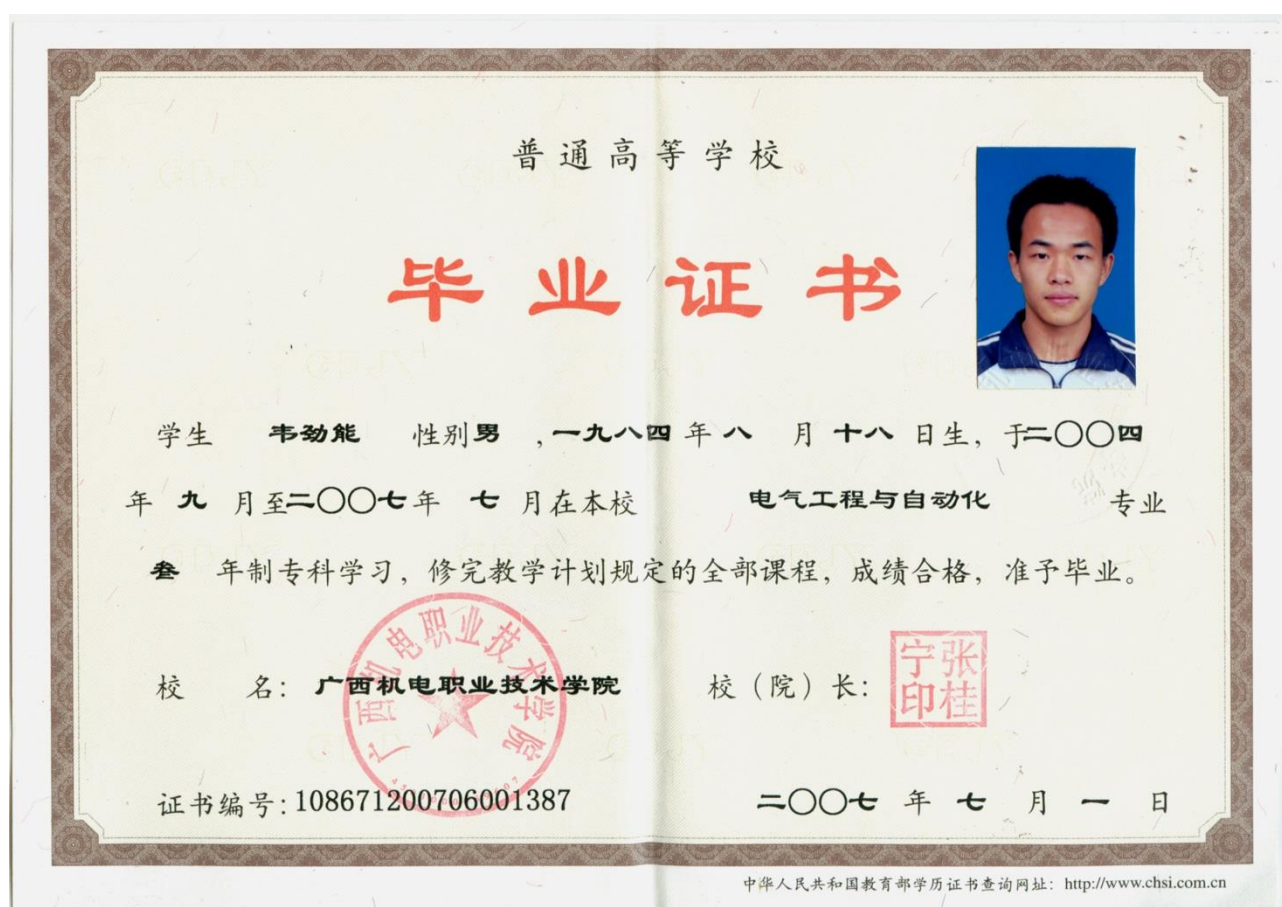 普通高等学校
毕业证书
学生 韦劲能 性别男 ,一九八四年八 月十八 日生, 于二〇〇四
年 九 月至二〇〇七年 七 月在本校 电气工程与自动化 专业
叁 年制专科学习, 修完教学计划规定的全部课程, 成绩合格, 准予毕业。
广西机电职业技术学院
校 名: 广西机电职业技术学院 校(院)长:
张桂宁印
证书编号:108671200706001387 二〇〇七 年 七 月 一 日
中华人民共和国教育部学历证书查询网址: http://www.chsi.com.cn